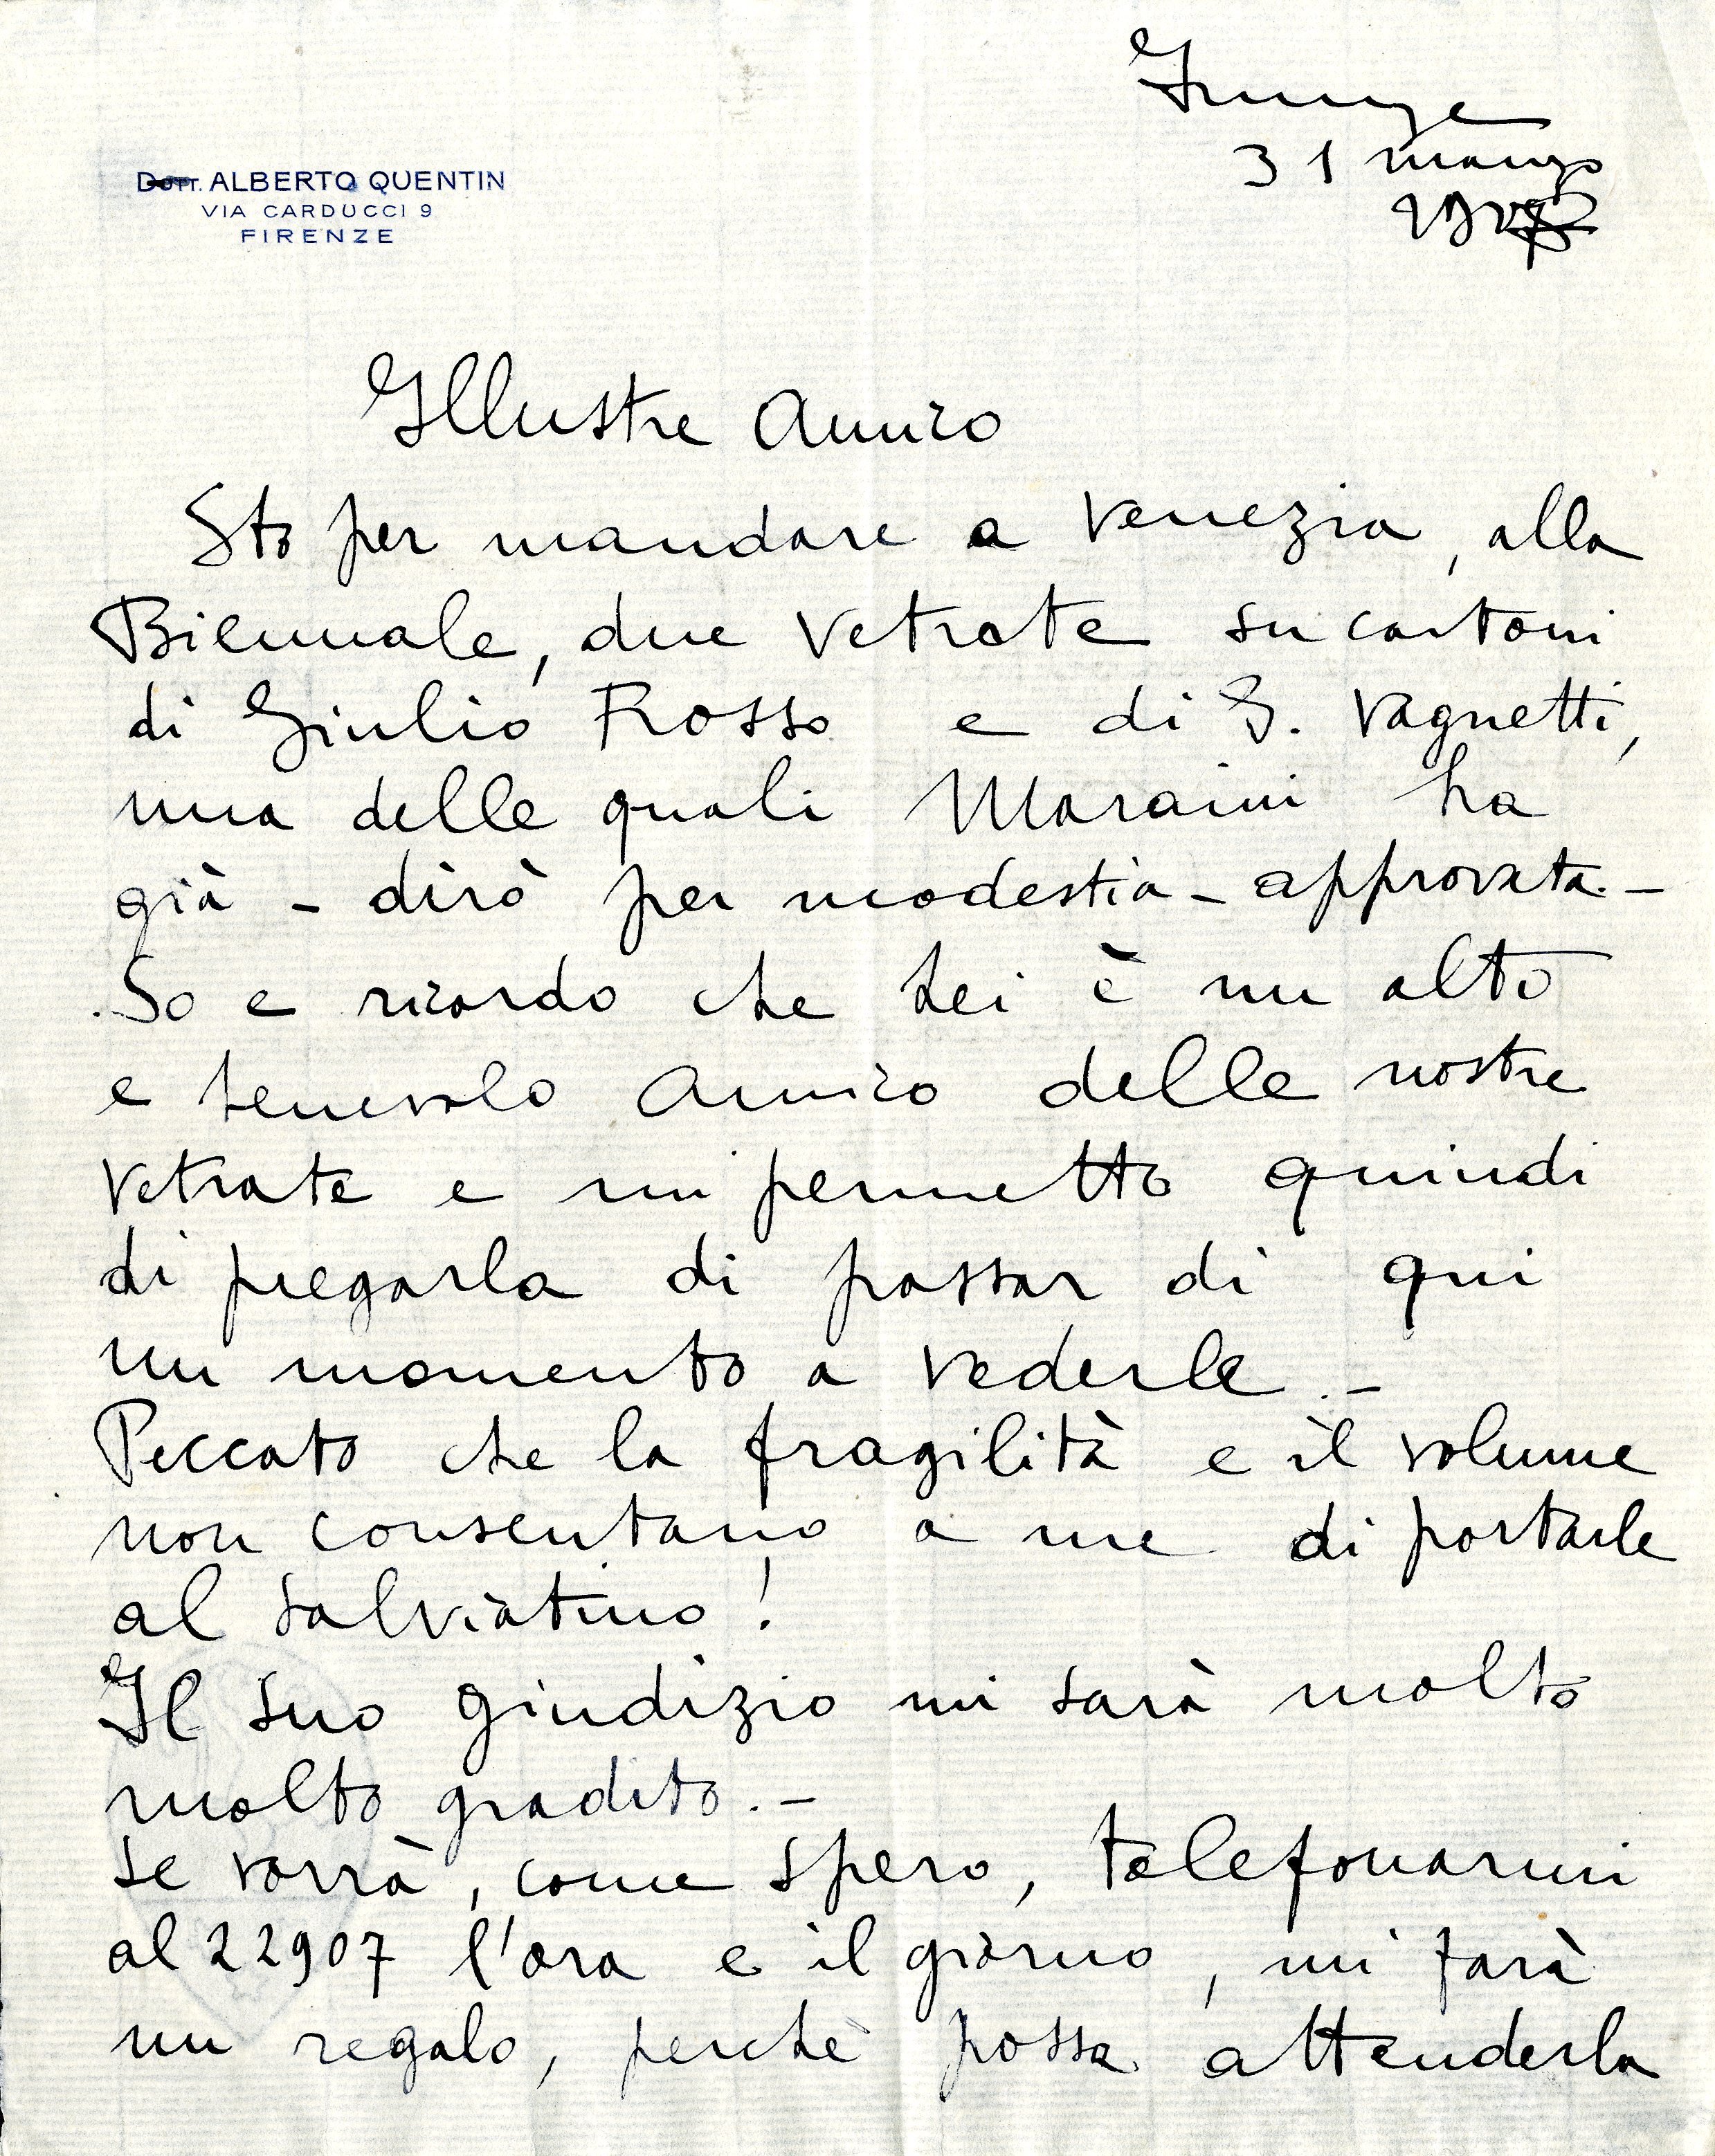 Firenze
31 marzo
DOTT. ALBERTO QUENTIN
VIA CARDUCCI 9
FIRENZE
Illustre Amico
Sto per mandare a Venezia, alla
Biennale, due vetrate su cartoni
di Giulio Rosso e di G. Vagnetti,
una delle quali Maraini ha
già - dirò per modestia - approvata. -
So e ricordo che Lei è un alto
e benevolo Amico delle nostre
vetrate e mi permetto quindi
di pregarla di passar di qui
un momento a vederle. -
Peccato che la fragilità e il volume
non consentano a me di portarle
al Salviatino!
Il suo giudizio mi sarà molto
molto gradito. -
Se vorrà, come spero, telefonarmi
al 22907 l'ora e il giorno, mi farà
un regalo, perchè possa attenderla